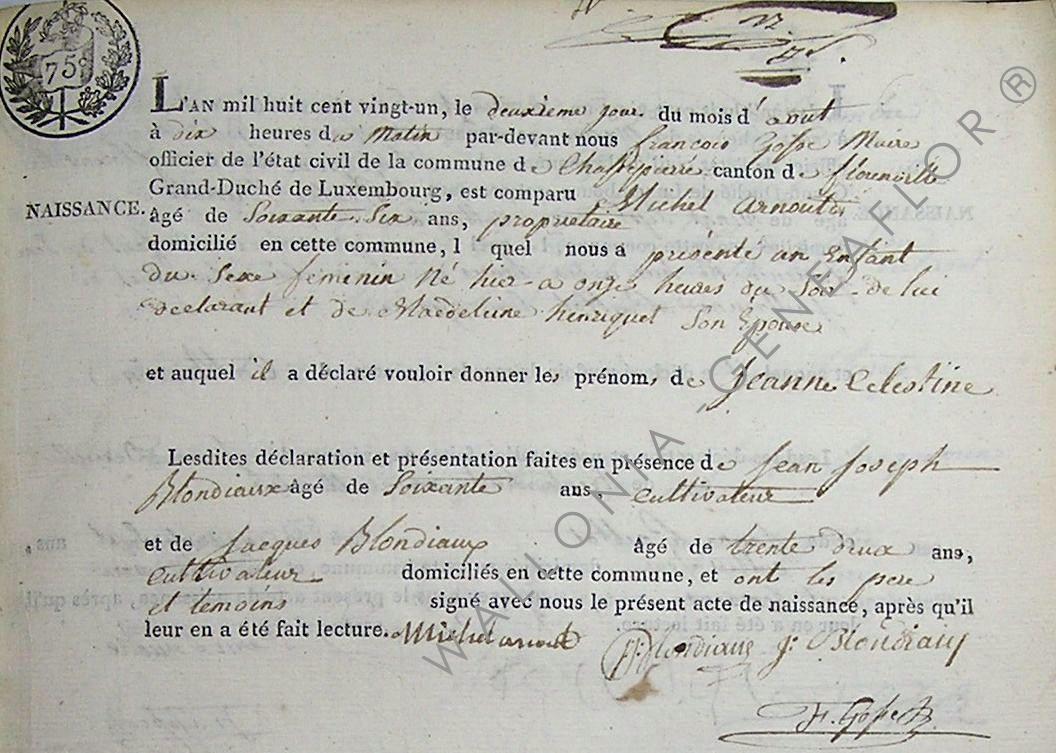 75
L'AN mil huit cent vingt-un, le deuxième jour du mois d'aout
à dix heures du Matin par-devant nous françois Gosse Maire
officier de l'état civil de la commune de Chassepierre canton de florenville
Grand-Duché de Luxembourg, est comparu Michel Arnould
NAISSANCE.
âgé de Soixante Six ans, proprietaire
domicilié en cette commune, l quel nous a présenté un Enfant
du Sexe feminin Né hier a onze heures du Soir de lui
declarant et de Magdeleine henriquet Son Epouse
et auquel il a déclaré vouloir donner les prénoms de Jeanne Celestine
Lesdites déclaration et présentation faites en présence de Jean Joseph
Blondiaux âgé de Soixante ans, cultivateur
et de Jacques Blondiaux âgé de trente deux ans,
cultivateur domiciliés en cette commune, et ont les pere
et temoins signé avec nous le présent acte de naissance, après qu'il
leur en a été fait lecture. Michel arnould JJ Blondiaux J: Blondiaux
F. Gosse
WALLONIA_GENEAFLOR ®